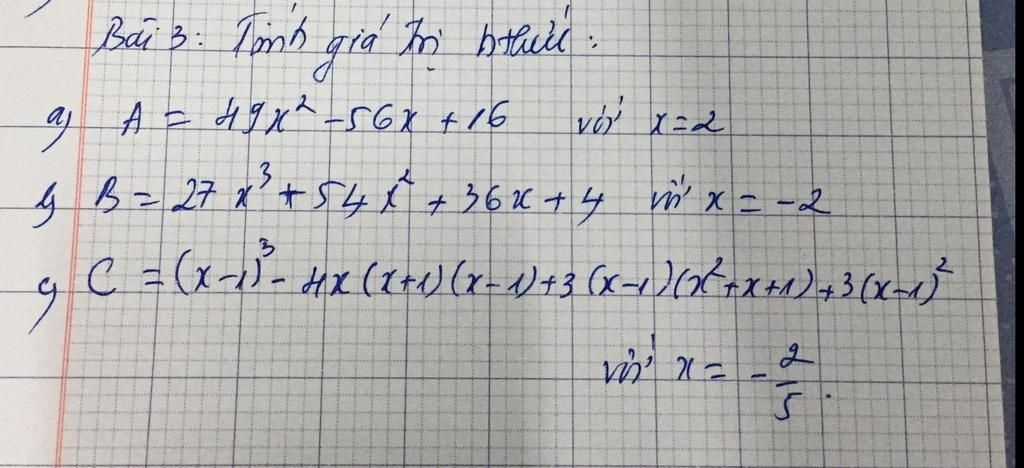 Bài 3: Tính giá trị bthức:
a) A = 49x² - 56x + 16 với x = 2
b) B = 27x³ + 54x² + 36x + 4 với x = -2
c) C = (x-1)³ - 4x(x+1)(x-1) + 3(x-1)(x²+x+1) + 3(x-1)²
với x = -2/5.